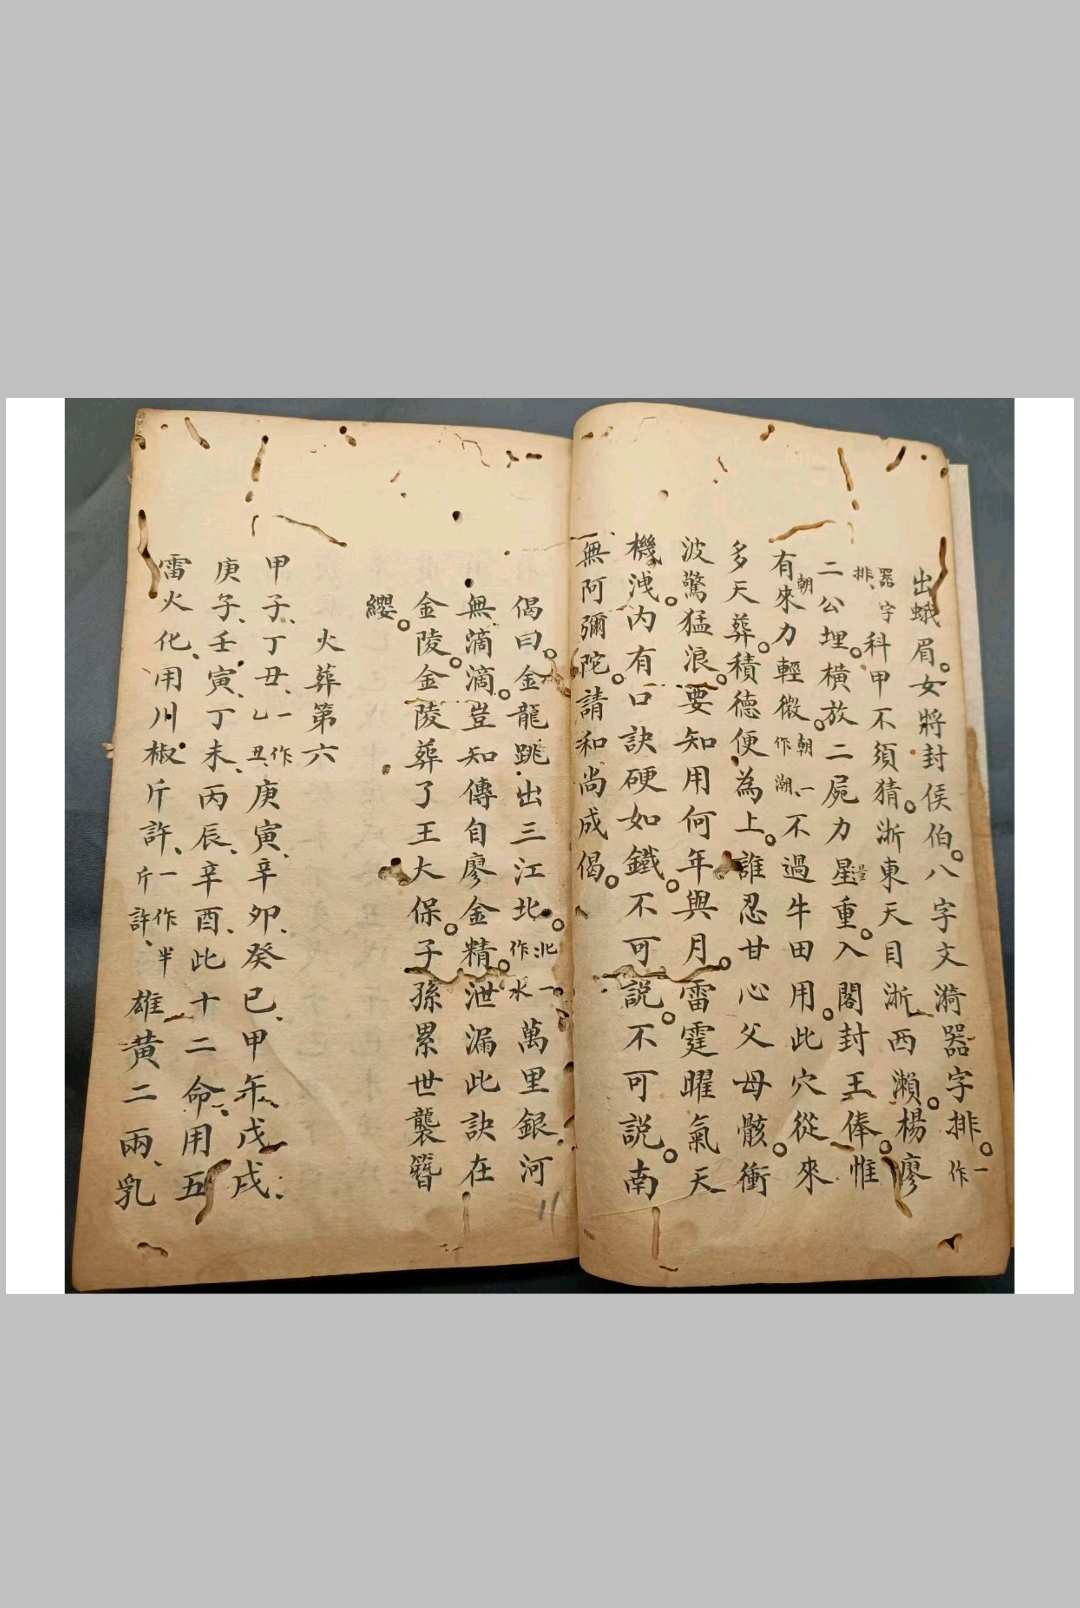 出蛾眉。女將封侯伯。八字文漪器字排。一作
器字排、科甲不須猜。浙東天目浙西瀨。楊廖
二公埋。橫放二屍力量重。入閣封王俸。惟
有朝來力輕微。朝一作潮、不過牛田用。此穴從來
多天葬。積德便為上。誰忍甘心父母骸。衝
波驚猛浪。要知用何年與月。雷霆曜氣天
機洩。內有口訣硬如鐵。不可說。不可說。南
無阿彌陀。請和尚成偈。
偈曰。金龍跳出三江北。北一作水萬里銀河
無滴滴。豈知傳自廖金精。泄漏此訣在
金陵。金陵葬了王大保。子孫累世襲簪
纓。
火葬第六
甲子、丁丑、一作乙丑、庚寅、辛卯、癸巳、甲午、戊戌、
庚子、壬寅、丁未、丙辰、辛酉、此十二命用五
雷火化、用川椒斤許、一作半斤許、雄黃二兩、乳